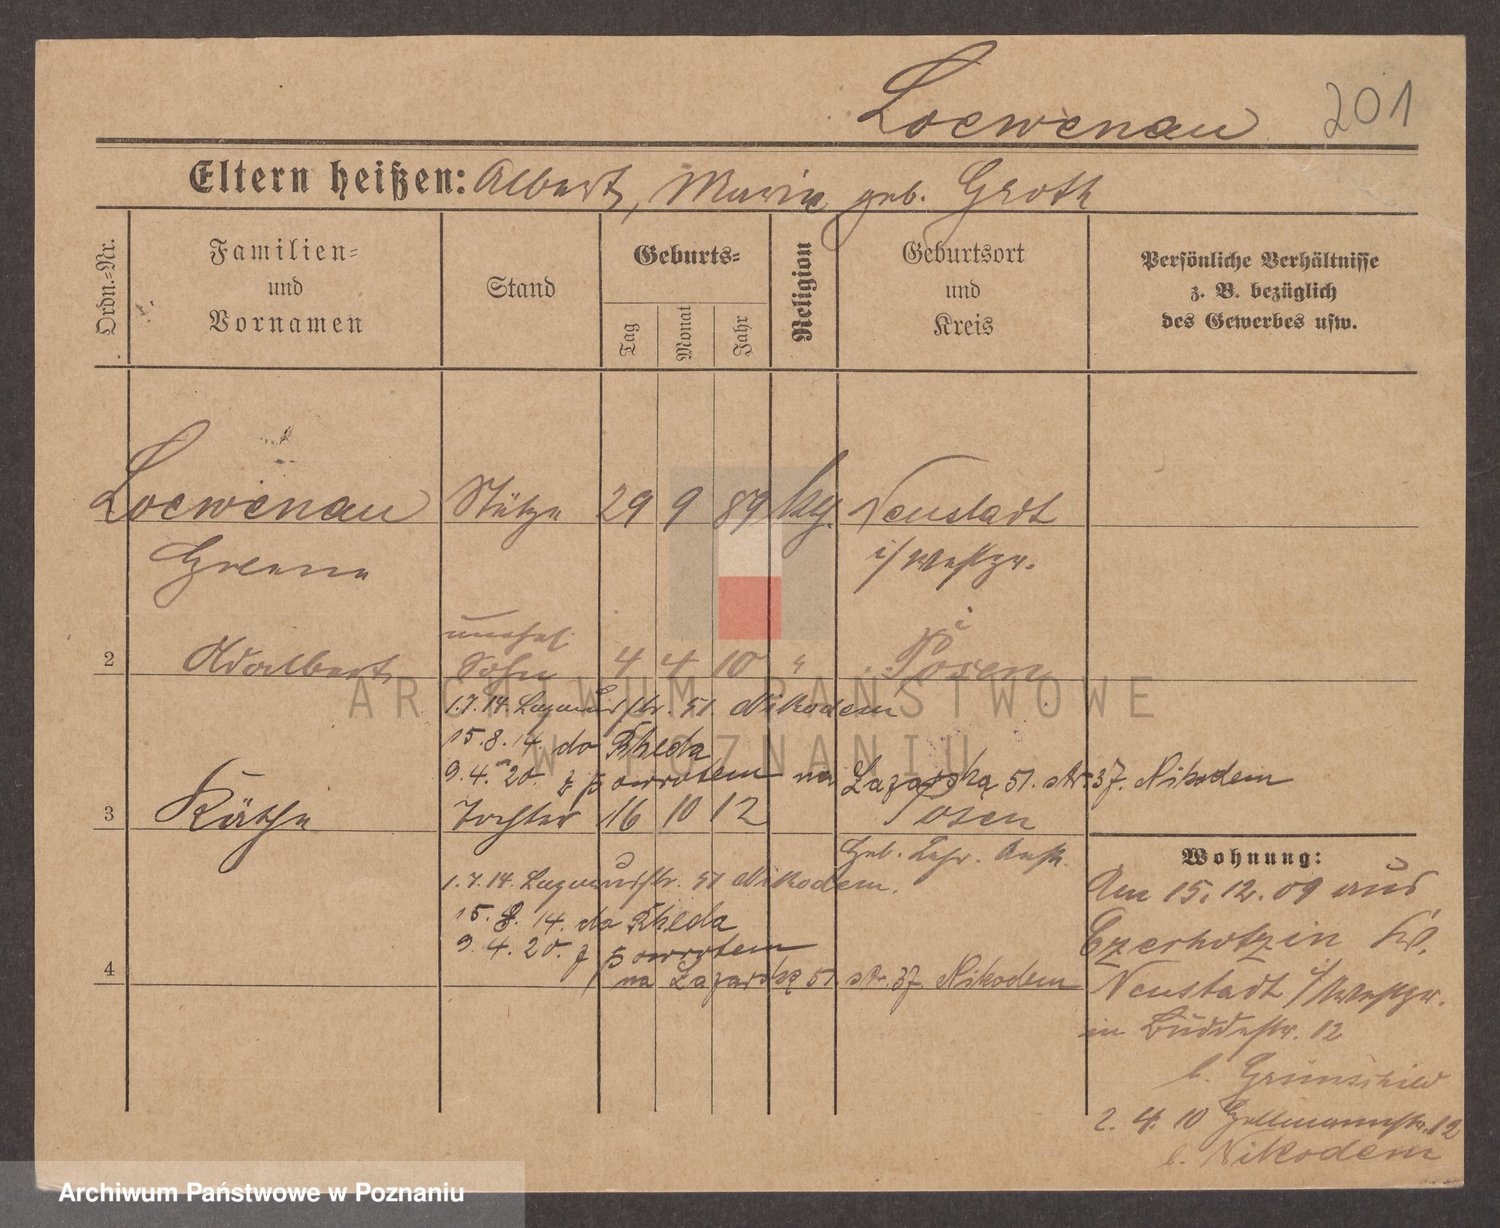 Loewenau 201
Eltern heißen: Albert, Maria geb. Groth
Ordn.-Nr.
Familien-
und
Vornamen
Stand
Geburts-
Tag
Monat
Jahr
Religion
Geburtsort
und
Kreis
Persönliche Verhältnisse
z. B. bezüglich
des Gewerbes usw.
Loewenau Stütze 29 9 89 kg. Neustadt
i/Westpr.
unehel.
2 Adalbert Sohn 4 4 10 " Posen
1.7.14. str. 51. Nikodem
15.8.14. do Rheda
9.4.20. z powrotem na Łazarską 51. str. 37. Nikodem
3 Käthe Tochter 16 10 12 Posen
Geb. Lehr. Anst.
1.7.14. str. 51 Nikodem.
15.8.14. do Rheda
9.4.20. z powrotem
4 na Łazarską 51 str. 37. Nikodem
Wohnung:
Am 15.12.09 aus
Kr.
Neustadt i/Westpr.
in Buddestr. 12
b.
2. 4. 10 12
b. Nikodem
ARCHIWUM PAŃSTWOWE
W POZNANIU
Archiwum Państwowe w Poznaniu